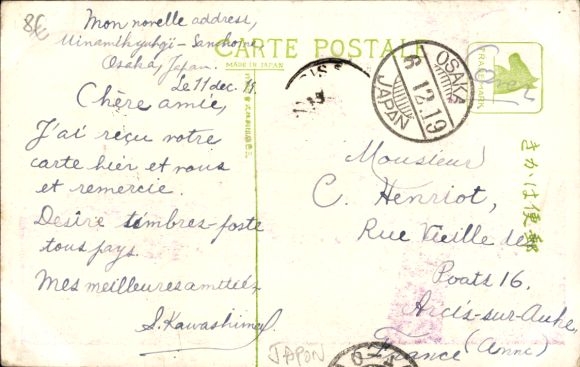 8€
Mon novelle address,
Minamikyuhoji-Sanchome
Osaka, Japan.
Le 11 dec. 19.
Chère amie,
J'ai reçu votre
carte hier et vous
et remercie.
Desire timbres-poste
tous pays.
Mes meilleures amitiés
S. Kawashima
CARTE POSTALE
MADE IN JAPAN
TRADE MARK
OSAKA
6.12.19
JAPAN
きかは便郵
Monsieur
C. Henriot,
Rue Vieille des
Ponts 16.
Arcis-sur-Aube,
France (Anni)
JAPON